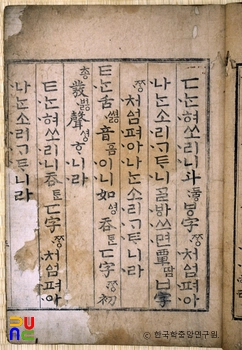 ㄷᄂᆞᆫ혀쏘리니斗ᄃᆞᇢㅸ字ᄍᆞᆼ처ᅀᅥᆷ펴아
나ᄂᆞᆫ소리ᄀᆞᄐᆞ니ᄀᆞᆯᄫᅡ쓰면覃땀ㅂ字
ᄍᆞᆼ처ᅀᅥᆷ펴아나ᄂᆞᆫ소리ᄀᆞᄐᆞ니라
ㅌᄂᆞᆫ舌쎯音ᅙᅳᆷ이니如ᅀᅧᆼ呑ᄐᆞᆫㄷ字ᄍᆞᆼ初
총發벓聲셩ᄒᆞ니라
ㅌᄂᆞᆫ혀쏘리니呑ᄐᆞᆫㄷ字ᄍᆞᆼ처ᅀᅥᆷ펴아
나ᄂᆞᆫ소리ᄀᆞᄐᆞ니라
ⓒ한국학중앙연구원